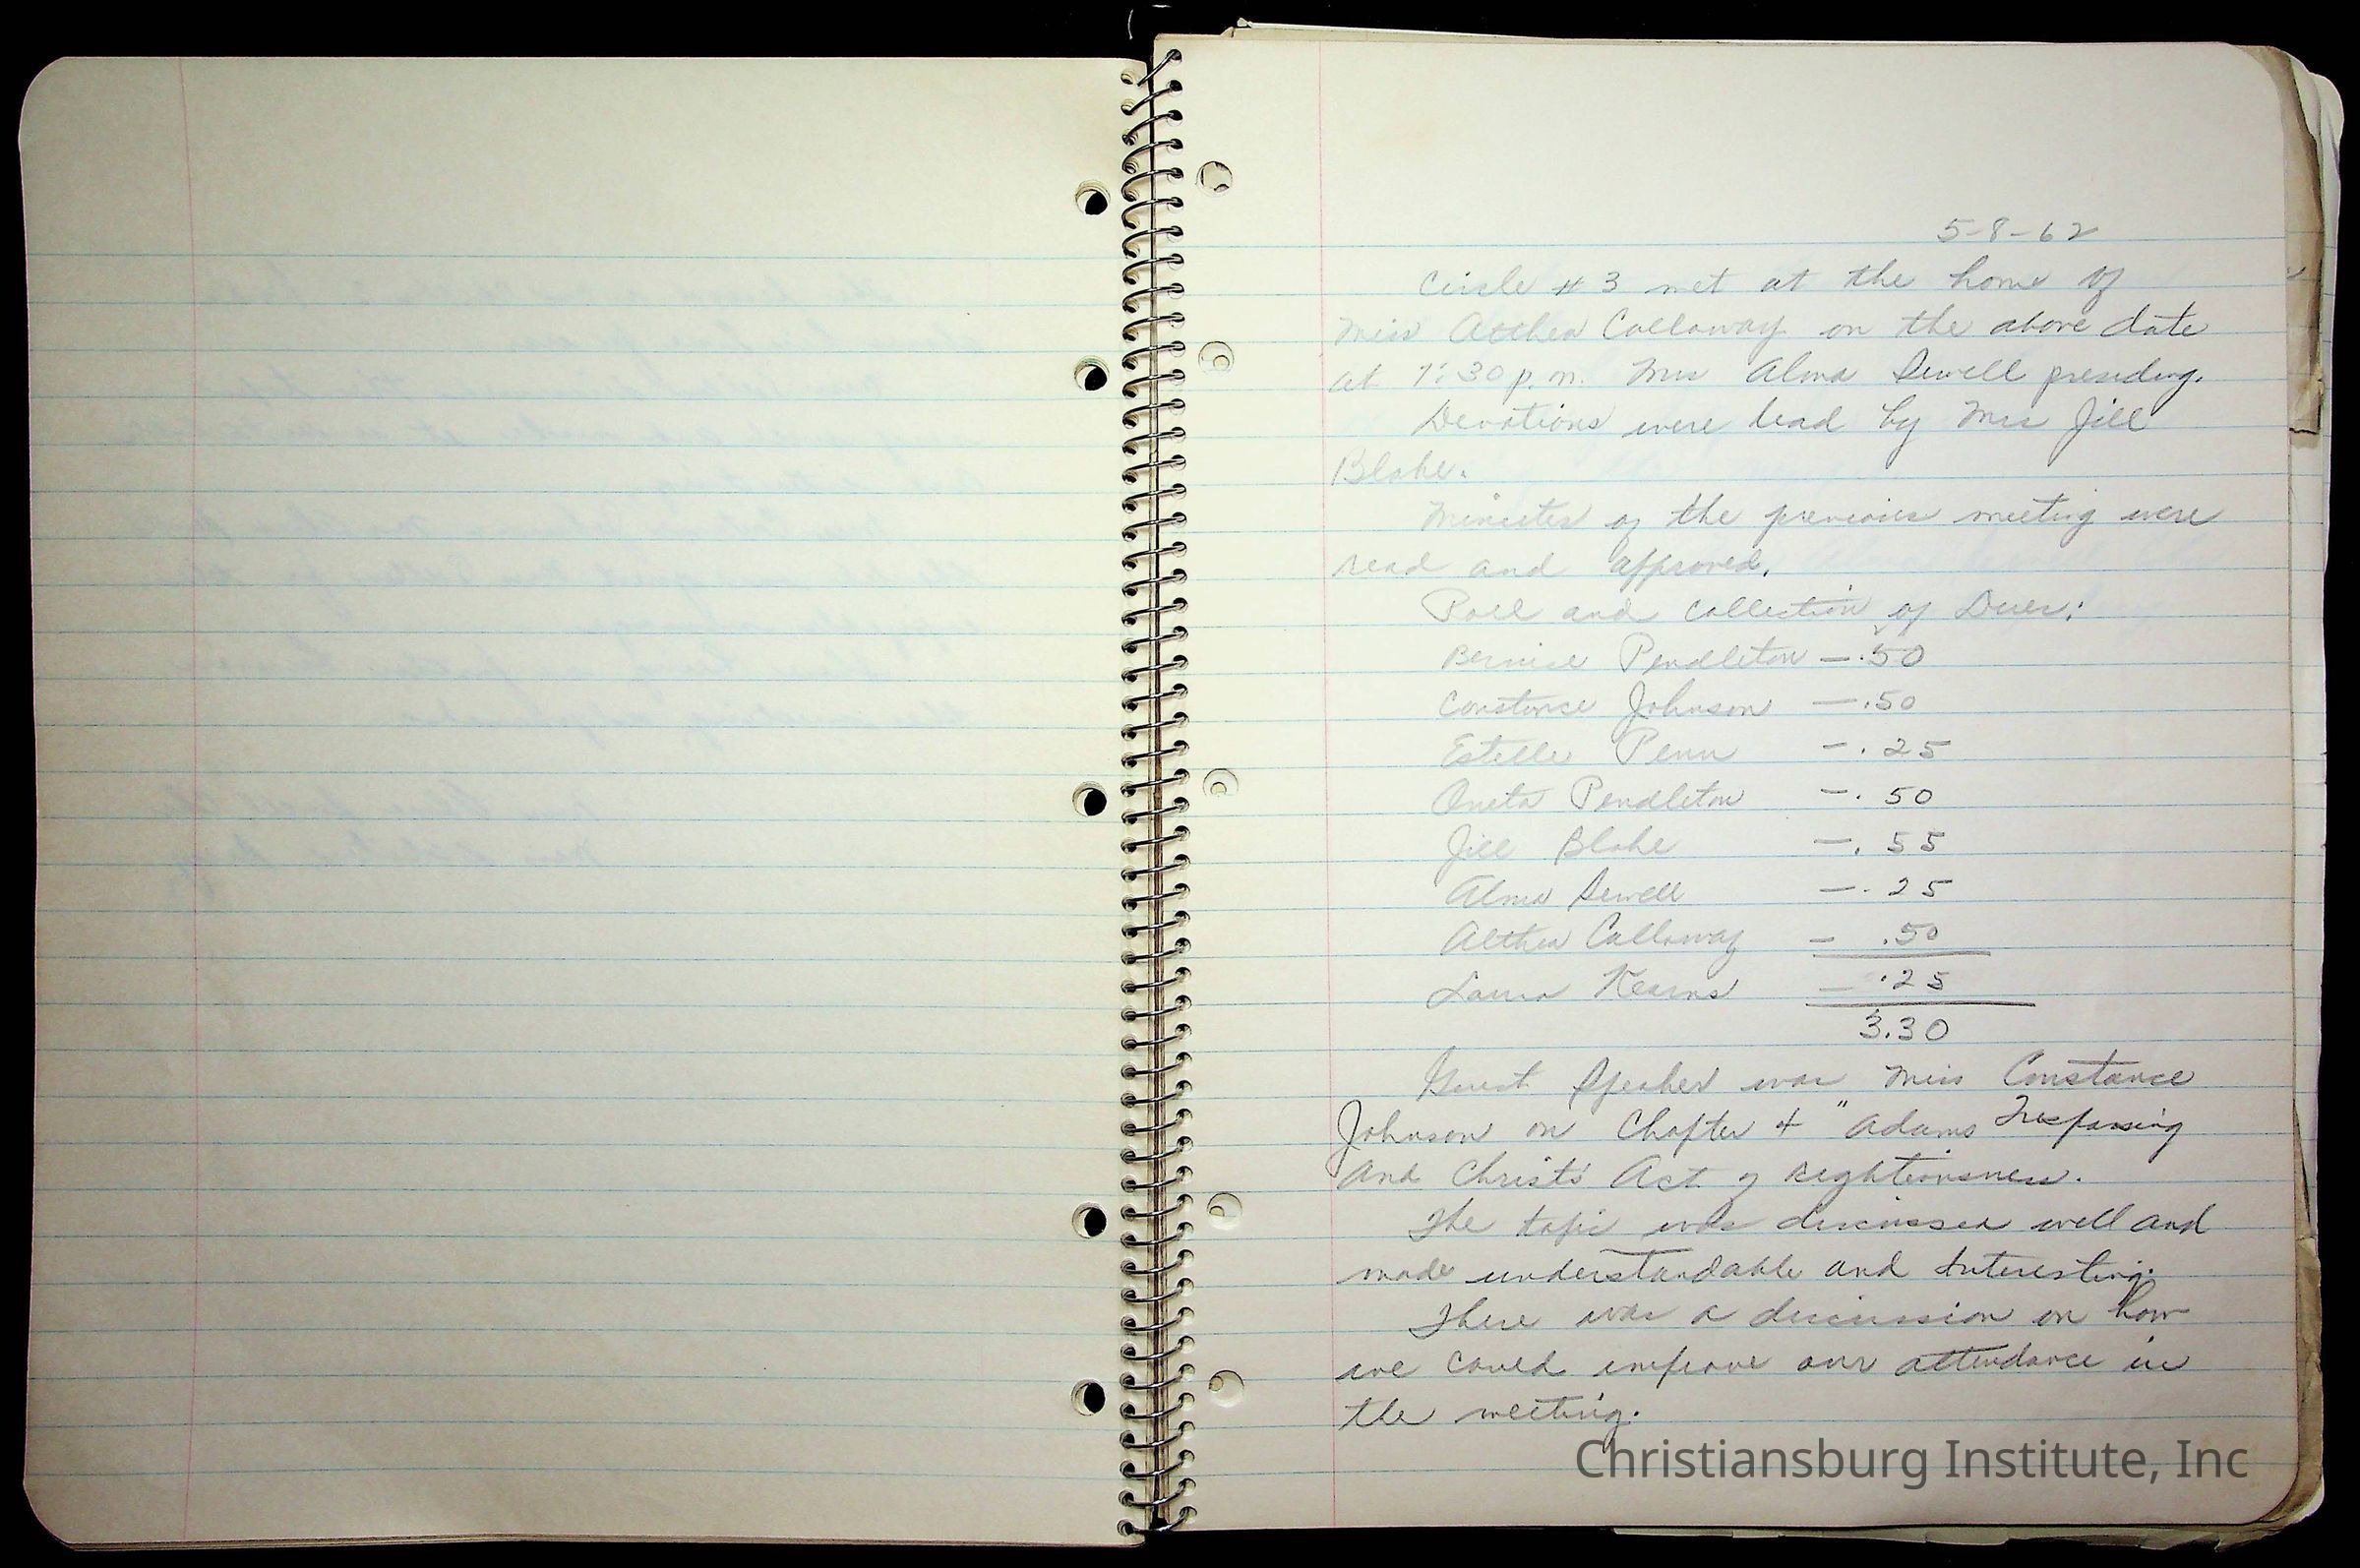 5-8-62
Circle # 3 met at the home of
Miss Althea Callaway on the above date
at 7:30 p.m. Mrs Alma Sewell presiding.
Devotions were lead by Mrs Jill
Blake.
Minutes of the previous meeting were
read and approved.
Roll and Collection of Dues:
Bernice Pendleton — .50
Constance Johnson — .50
Estelle Penn — .25
Oneta Pendleton — .50
Jill Blake — .55
Alma Sewell — .25
Althea Callaway — .50
Laura Kearns — .25
3.30
Guest Speaker was Miss Constance
Johnson on Chapter 4 "Adams Trespassing
and Christs Act of Rightiousness.
The topic was discussed well and
made understandable and Interesting.
There was a discussion on how
we could improve our attendance in
the meeting.
Christiansburg Institute, Inc